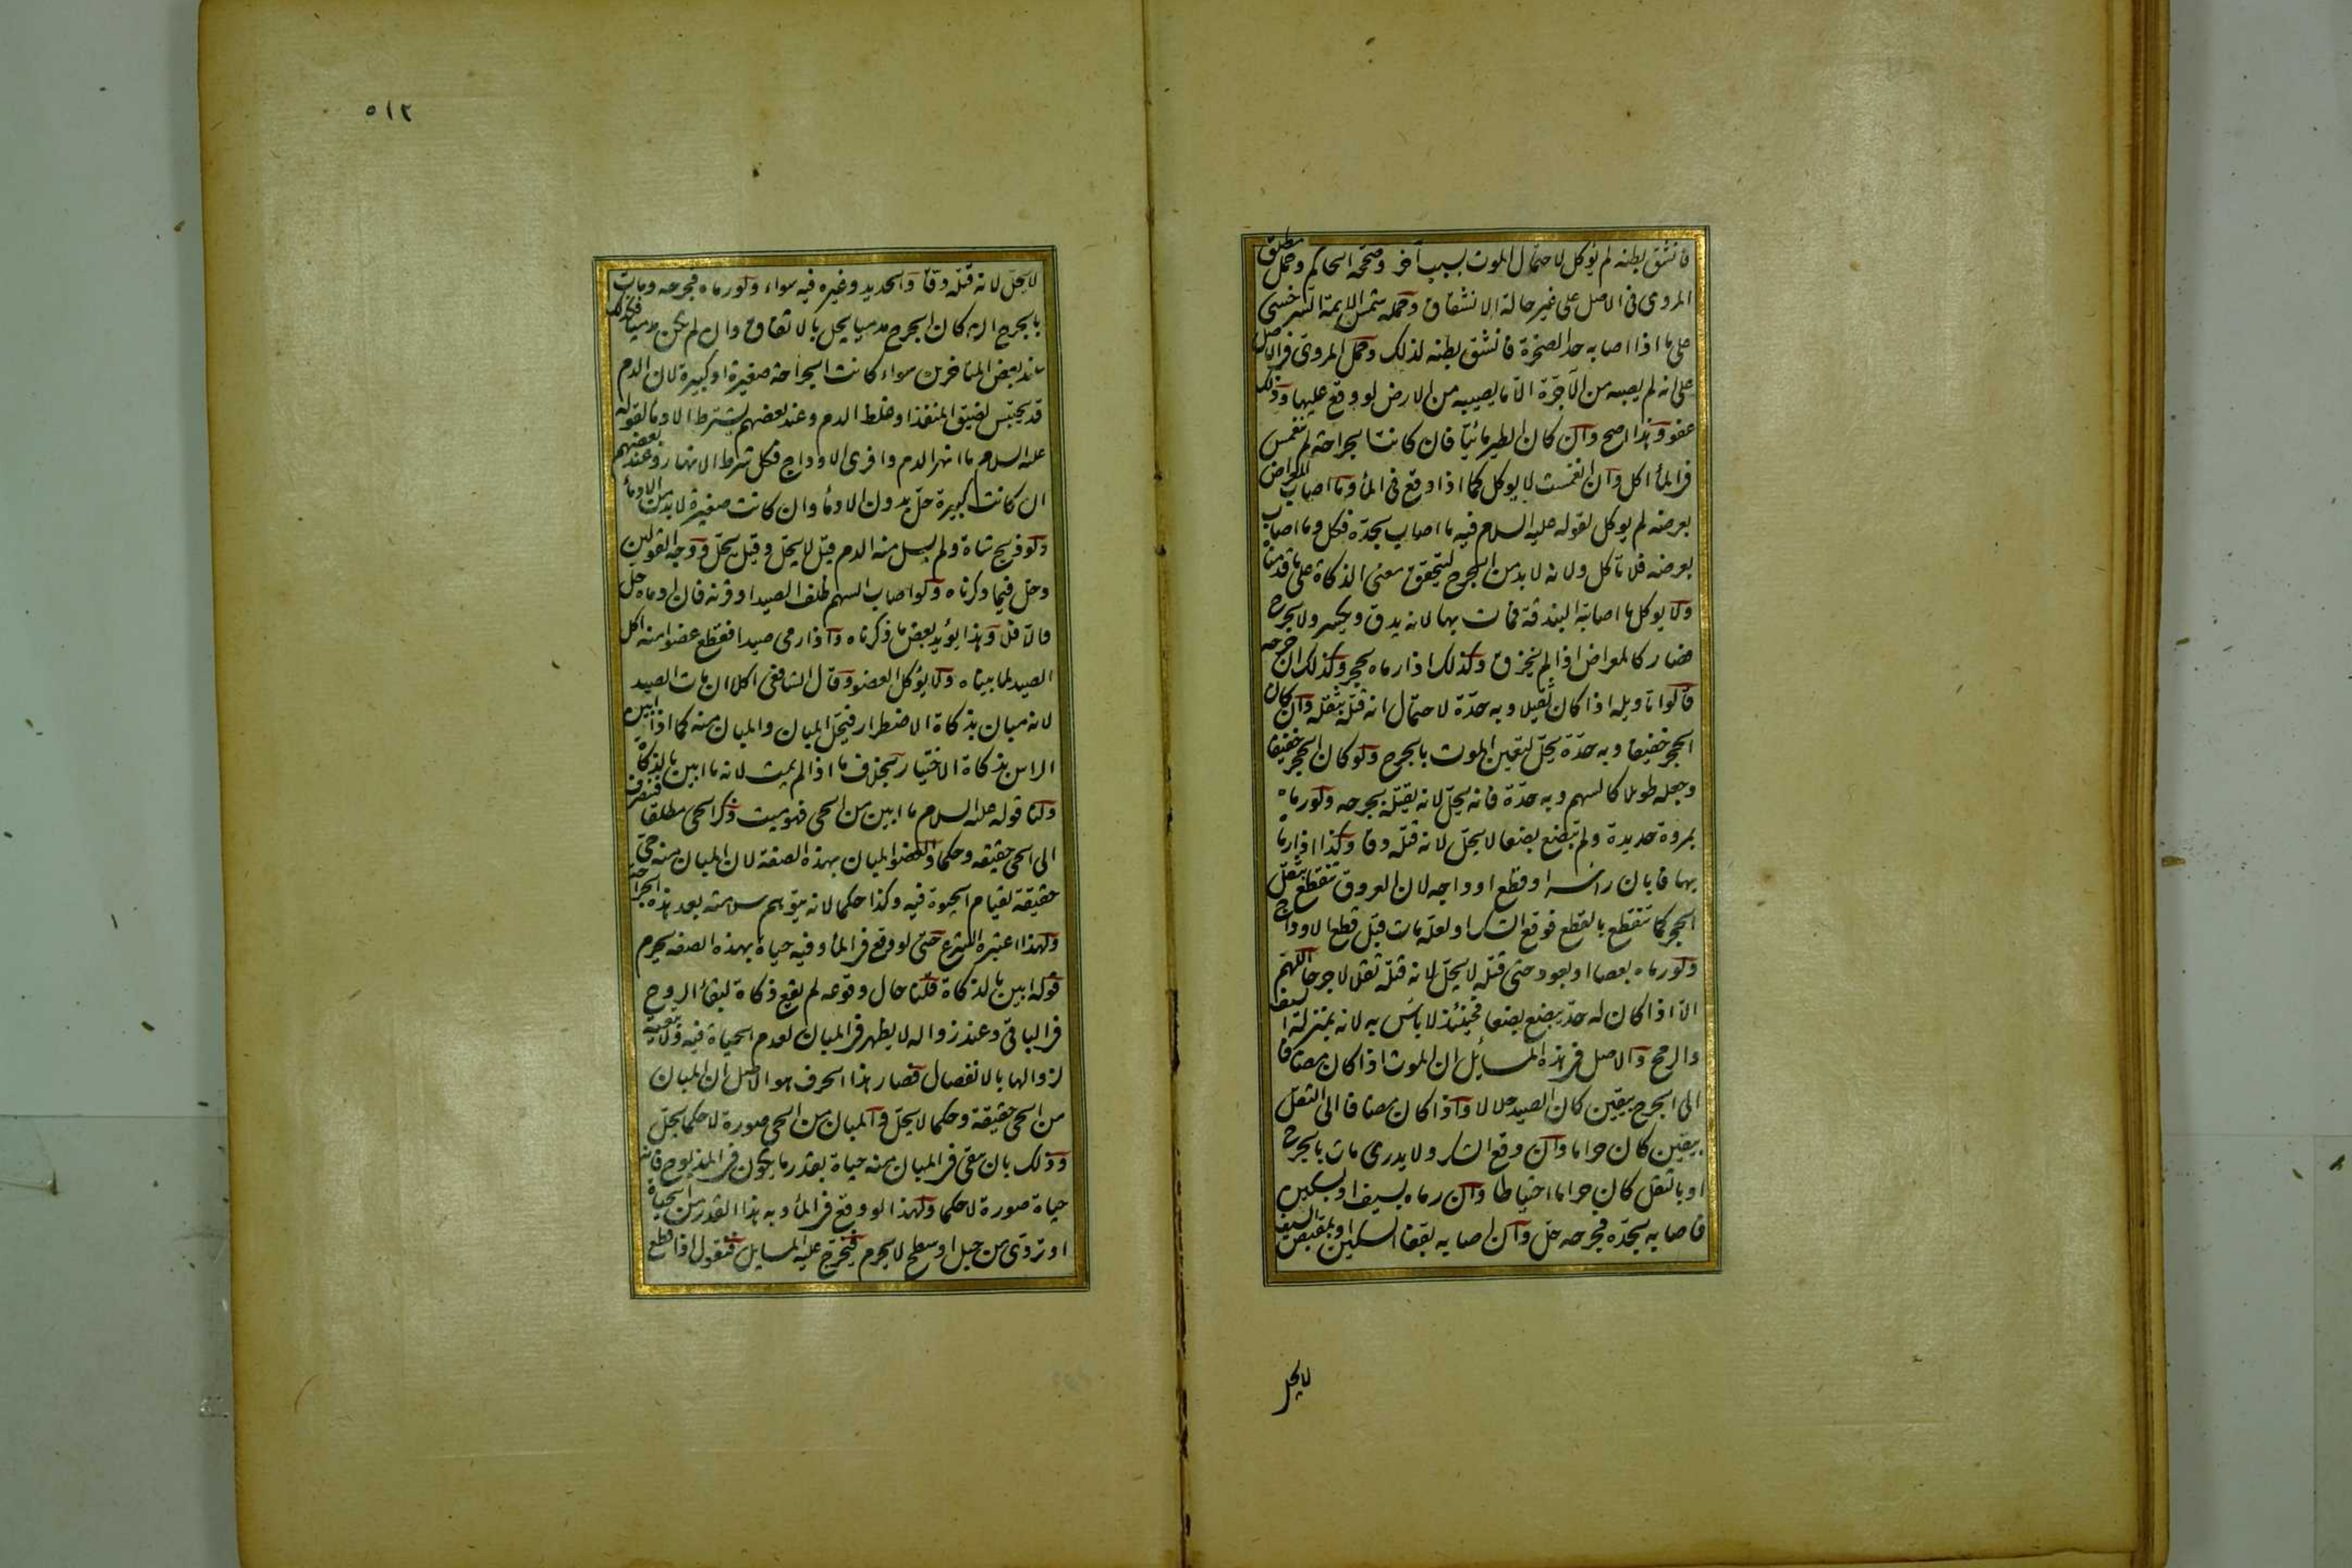 فانشق بطنه لم يؤكل لاحتمال الموت بسبب آخر وصححه الحاكم وحمل مطلق
المروى فى الاصل على غير حالة الانشقاق وحمله شمس الايمة السرخسى
على ما اذا اصابه حد الصخرة فانشق بطنه لذلك وحمل المروى فى الاصل
على انه لم يصبه من الآجرّة الا ما يصيبه من الارض لو وقع عليها وذلك
عفو وهذا اصح وان كان الطير مائيا فان كانت الجراحة لم تنغمس
فى الماء اكل وان انغمست لا يوكل كما اذا وقع فى الماء وما اصاب المعراض
بعرضه لم يوكل لقوله عليه السلام فيه ما اصاب بحدّه فكل وما اصاب
بعرضه فلا تأكل ولانه لا بد من الجرح ليتحقق معنى الذكاة على ما قدمناه
ولا يوكل ما اصابته البندقة فمات بها لانه يدق ويكسر ولا يجرح
فصار كالمعراض اذا لم يخزق وكذلك اذا رماه بحجر وكذلك ان جرحه
قالوا تاويله اذا كان ثقيلا وبه حدّة لاحتمال انه قتله بثقله وان كان
الحجر خفيفا وبه حدّة يحلّ لتعين الموت بالجرح ولو كان الحجر خفيفا
وجعله طويلا كالسهم وبه حدّة فانه يحلّ لانه يقتله بجرحه ولو رماه
بمروة حديدة ولم تبضع بضعا لا يحلّ لانه قتله دقا وكذا اذا رماه
بها فابان راسه او قطع اوداجه لان العروق تنقطع بثقل
الحجر كما تنقطع بالقطع فوقع الشك او لعله مات قبل قطع الاوداج
ولو رماه بعصا او بعود حتى قتله لا يحلّ لانه قتله ثقلا لا جرحا اللهم
الا اذا كان له حدّ يبضع بضعا فحينئذ لا بأس به لانه بمنزلة السيف
والرمح والاصل فى هذه المسائل ان الموت اذا كان مضافا
الى الجرح بيقين كان الصيد حلالا واذا كان مضافا الى الثقل
بيقين كان حراما وان وقع الشك ولا يدرى مات بالجرح
او بالثقل كان حراما احتياطا وان رماه بسيف او بسكين
فاصابه بحدّه فجرحه حلّ وان اصابه بقفا السكين او بمقبض السيف
لا يحل
٥١٢
لا يحلّ لانه قتله دقا والحديد وغيره فيه سواء ولو رماه فجرحه ومات
بالجرح ان كان الجرح مدميا يحل بالاتفاق وان لم يكن مدميا فكذلك
عند بعض المتاخرين سواء كانت الجراحة صغيرة او كبيرة لان الدم
قد يحتبس لضيق المنفذ او غلظ الدم وعند بعضهم يشترط الادماء لقوله
عليه السلام ما انهر الدم وافرى الاوداج فكل شرط الانهار وعند بعضهم
ان كانت كبيرة حلّ بدون الادماء وان كانت صغيرة لا بد من الادماء
ولو ذبح شاة ولم يسل منه الدم قيل لا يحلّ وقيل يحلّ ووجه القولين
دخل فيما ذكرناه ولو اصاب السهم ظلف الصيد او قرنه فان ادماه حل
والا فلا وهذا يؤيد بعض ما ذكرناه واذا رمى صيدا فقطع عضوا منه اكل
الصيد لما بيناه ولا يؤكل العضو وقال الشافعى اكلا ان مات الصيد
لانه مبان بذكاة الاضطرار فيحلّ المبان والمبان منه كما اذا ابين
الراس بذكاة الاختيار بخلاف ما اذا لم يمت لانه ما ابين بالذكاة
ولنا قوله عليه السلام ما ابين من الحى فهو ميت ذكر الحى مطلقا فينصرف
الى الحى حقيقة وحكما والعضو المبان بهذه الصفة لان المبان منه حى
حقيقة لقيام الحيوة فيه وكذا حكما لانه يتوهم سلامته بعد هذه الجراحة
ولهذا اعتبره الشرع حتى لو وقع فى الماء وفيه حياة بهذه الصفة يحرم
قوله ابين بالذكاة قلنا حال وقوعه لم يقع ذكاة لبقاء الروح
فى الباقى وعند زواله لا يظهر فى المبان لعدم الحياة فيه ولا تبعية
لزوالها بالانفصال فصار هذا الحرف هو الاصل ان المبان
من الحى حقيقة وحكما لا يحلّ والمبان من الحى صورة لا حكما يحلّ
وذلك بان يبقى فى المبان منه حياة بقدر ما يكون فى المذبوح فانه
حياة صورة لا حكما ولهذا لو وقع فى الماء وبه هذا القدر من الحياة
او تردّى من جبل او سطح لا يحرم فتخرّج عليه المسايل فنقول اذا قطع